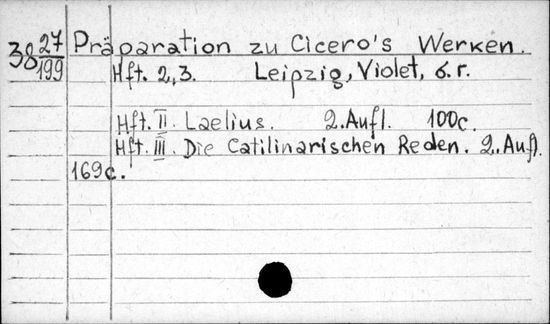 38 27/199 Präparation zu Cicero's Werken.
Hft. 2,3. Leipzig, Violet, б.г.
Hft. II. Laelius. 2.Aufl. 100c.
Hft. III. Die Catilinarischen Reden. 2.Aufl.
169c.